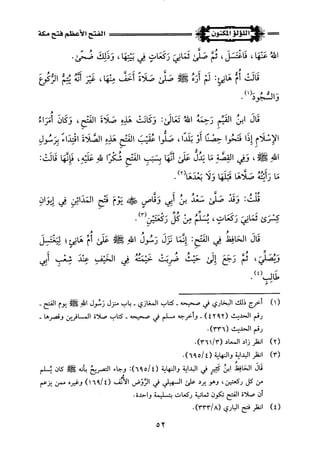 اللؤلؤ المكنون
الفتح الأعظم فتح مكة
اللهُ عَنْهَا، فَاغْتَسَلَ، ثُمَّ صَلَّىٰ ثَمَانِيَ رَكَعَاتٍ فِي بَيْتِهَا، وَذَلِكَ ضُحًىٰ.
قَالَتْ أُمُّ هَانِئٍ: لَمْ أَرَهُ ﷺ صَلَّىٰ صَلَاةً أَخَفَّ مِنْهَا، غَيْرَ أَنَّهُ يُتِمُّ الرُّكُوعَ
وَالسُّجُودَ(١).
قَالَ ابنُ القَيِّمِ رَحِمَهُ اللهُ تَعَالَىٰ: وَكَانَتْ هَذِهِ صَلَاةَ الفَتْحِ، وَكَانَ أُمَرَاءُ
الإِسْلَامِ إِذَا فَتَحُوا حِصْنًا أَوْ بَلَدًا، صَلُّوا عُقَيْبَ الفَتْحِ هَذِهِ الصَّلَاةَ اقْتِدَاءً بِرَسُولِ
اللهِ ﷺ، وَفِي القِصَّةِ مَا يَدُلُّ عَلَىٰ أَنَّهَا بِسَبَبِ الفَتْحِ شُكْرًا للهِ عَلَيْهِ، فَإِنَّهَا قَالَتْ:
مَا رَأَيْتُهُ صَلَّاهَا قَبْلَهَا وَلَا بَعْدَهَا(٢).
قُلْتُ: وَقَدْ صَلَّىٰ سَعْدُ بنُ أَبِي وَقَّاصٍ ﷺ يَوْمَ فَتْحِ المَدَائِنِ فِي إِيوَانِ
كِسْرَىٰ ثَمَانِيَ رَكَعَاتٍ، يُسَلِّمُ مِنْ كُلِّ رَكْعَتَيْنِ(٣).
قَالَ الحَافِظُ فِي الفَتْحِ: إِنَّمَا نَزَلَ رَسُولُ اللهِ ﷺ عَلَىٰ أُمِّ هَانِئٍ؛ لِيَغْتَسِلَ
وَيُصَلِّيَ، ثُمَّ رَجَعَ إِلَىٰ حَيْثُ ضُرِبَتْ خَيْمَتُهُ فِي الخَيْفِ عِنْدَ شِعْبِ أَبِي
طَالِبٍ(٤).
(١) أخرج ذلك البخاري في صحيحه - كتاب المغازي - باب منزل رَسُول اللهِ ﷺ يوم الفتح -
رقم الحديث (٤٢٩٢) - وأخرجه مسلم في صحيحه - كتاب صلاة المسافرين وقصرها -
رقم الحديث (٣٣٦).
(٢) انظر زاد المعاد (٣٦١/٣).
(٣) انظر البداية والنهاية (٦٩٥/٤).
قَالَ الحَافِظُ ابنُ كَثِيرٍ في البداية والنهاية (٦٩٥/٤): وجاء التصريح بأنه ﷺ كان يُسلم
من كل ركعتين، وهو يرد على السهيلي في الرَّوْضِ الأُنُف (١٦٩/٤) وغيره ممن يزعم
أن صلاة الفتح تكون ثمانية ركعات بتسليمة واحدة.
(٤) انظر فتح الباري (٣٣٣/٨).
٥٢